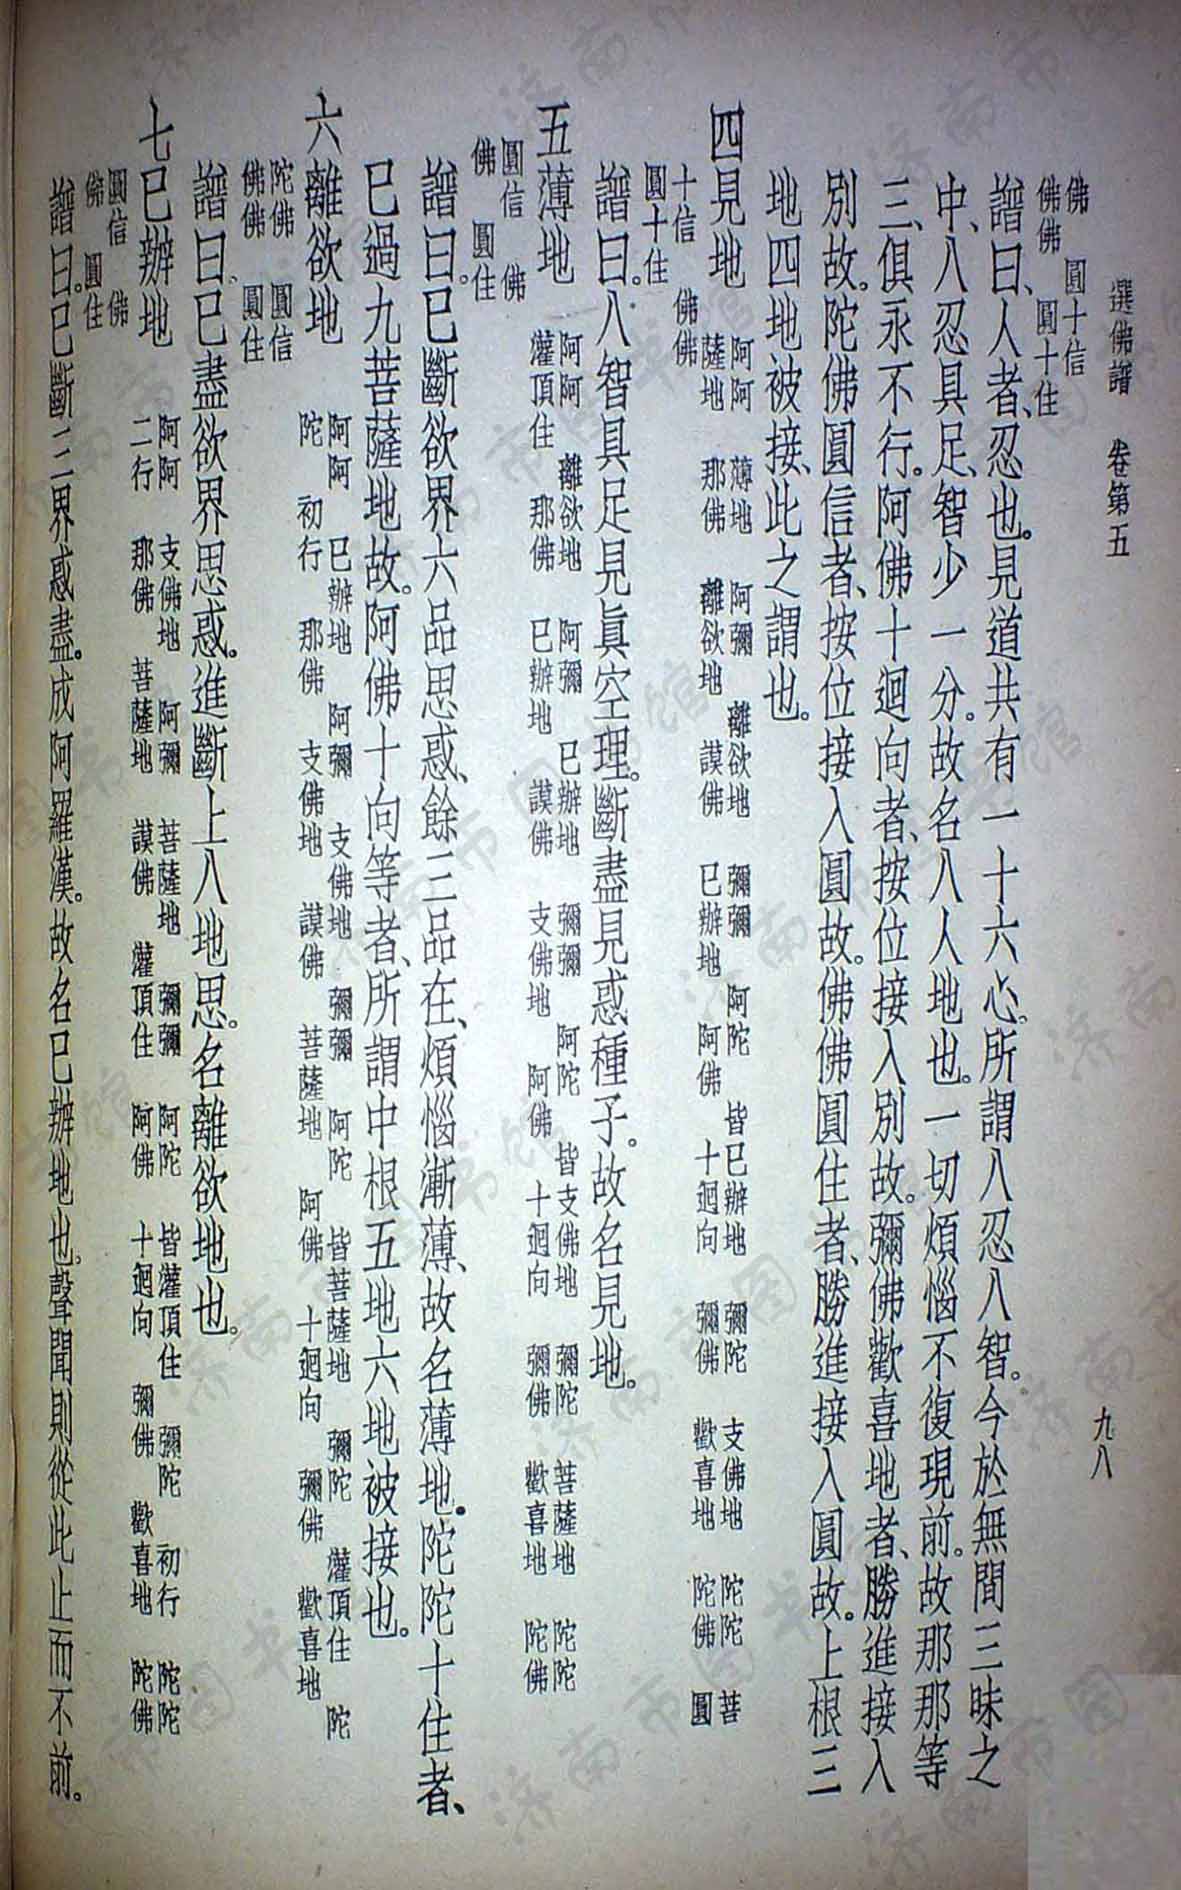 選佛譜　卷第五　九八
佛　圓十信
佛佛　圓十住
譜曰、人者、忍也。見道共有一十六心。所謂八忍八智。今於無間三昧之
中、八忍具足、智少一分。故名八人地也。一切煩惱不復現前。故那那等
三、俱永不行。阿佛十迴向者、按位接入別故。彌佛歡喜地者、勝進接入
別故。陀佛圓信者、按位接入圓故。佛佛圓住者、勝進接入圓故。上根三
地四地被接、此之謂也。
四見地
阿阿　薄地　阿彌　離欲地　彌彌　阿陀　皆已辦地　彌陀　支佛地　陀陀　菩
薩地　那佛　離欲地　謨佛　已辦地　阿佛　十迴向　彌佛　歡喜地　陀佛　圓
十信　佛佛
圓十住
譜曰。八智具足見眞空理。斷盡見惑種子。故名見地。
五薄地
阿阿　離欲地　阿彌　已辦地　彌彌　阿陀　皆支佛地　彌陀　菩薩地　陀陀
灌頂住　那佛　已辦地　謨佛　支佛地　阿佛　十迴向　彌佛　歡喜地　陀佛
圓信　佛
佛　圓住
譜曰。已斷欲界六品思惑、餘三品在、煩惱漸薄、故名薄地。陀陀十住者、
已過九菩薩地故。阿佛十向等者、所謂中根五地六地被接也。
六離欲地
阿阿　已辦地　阿彌　支佛地　彌彌　阿陀　皆菩薩地　彌陀　灌頂住　陀
陀　初行　那佛　支佛地　謨佛　菩薩地　阿佛　十迴向　彌佛　歡喜地
陀佛　圓信
佛佛　圓住
譜曰、已盡欲界思惑。進斷上八地思。名離欲地也。
七已辦地
阿阿　支佛地　阿彌　菩薩地　彌彌　阿陀　皆灌頂住　彌陀　初行　陀陀
二行　那佛　菩薩地　謨佛　灌頂住　阿佛　十迴向　彌佛　歡喜地　陀佛
圓信　佛
佛　圓住
譜曰。已斷三界惑盡。成阿羅漢。故名已辦地也。聲聞則從此止而不前。
济南市图书馆